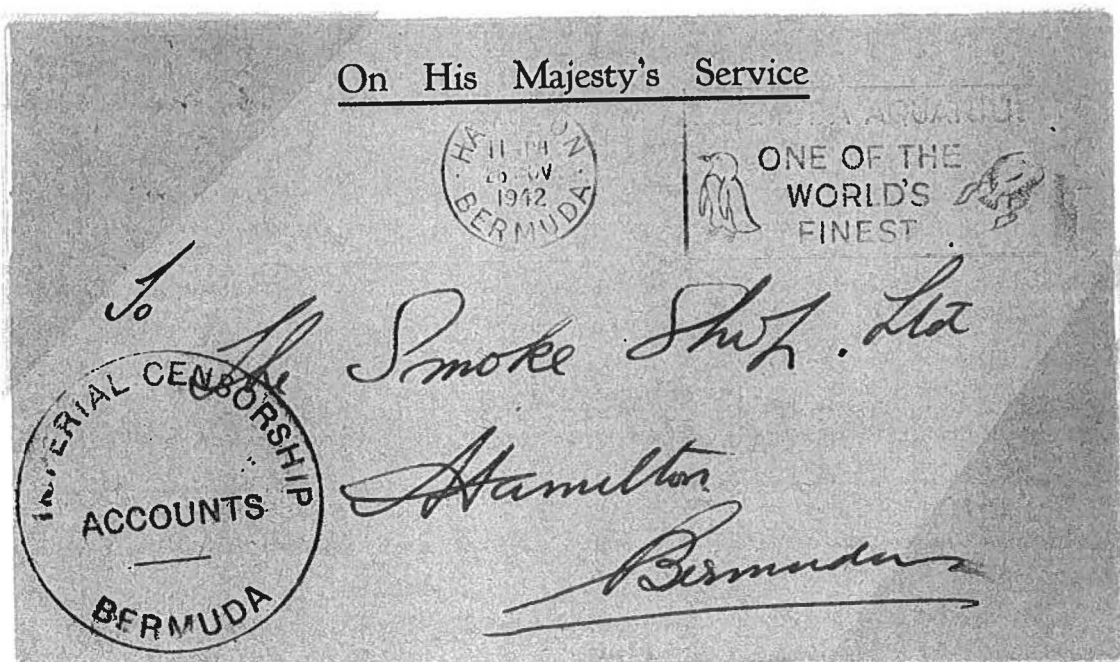 On His Majesty's Service
HAMILTON
11 PM
NOV
1942
BERMUDA
AQUARIUM
ONE OF THE
WORLD'S
FINEST
To
The Smoke Shop. Ltd
Hamilton
Bermuda
IMPERIAL CENSORSHIP
ACCOUNTS
BERMUDA